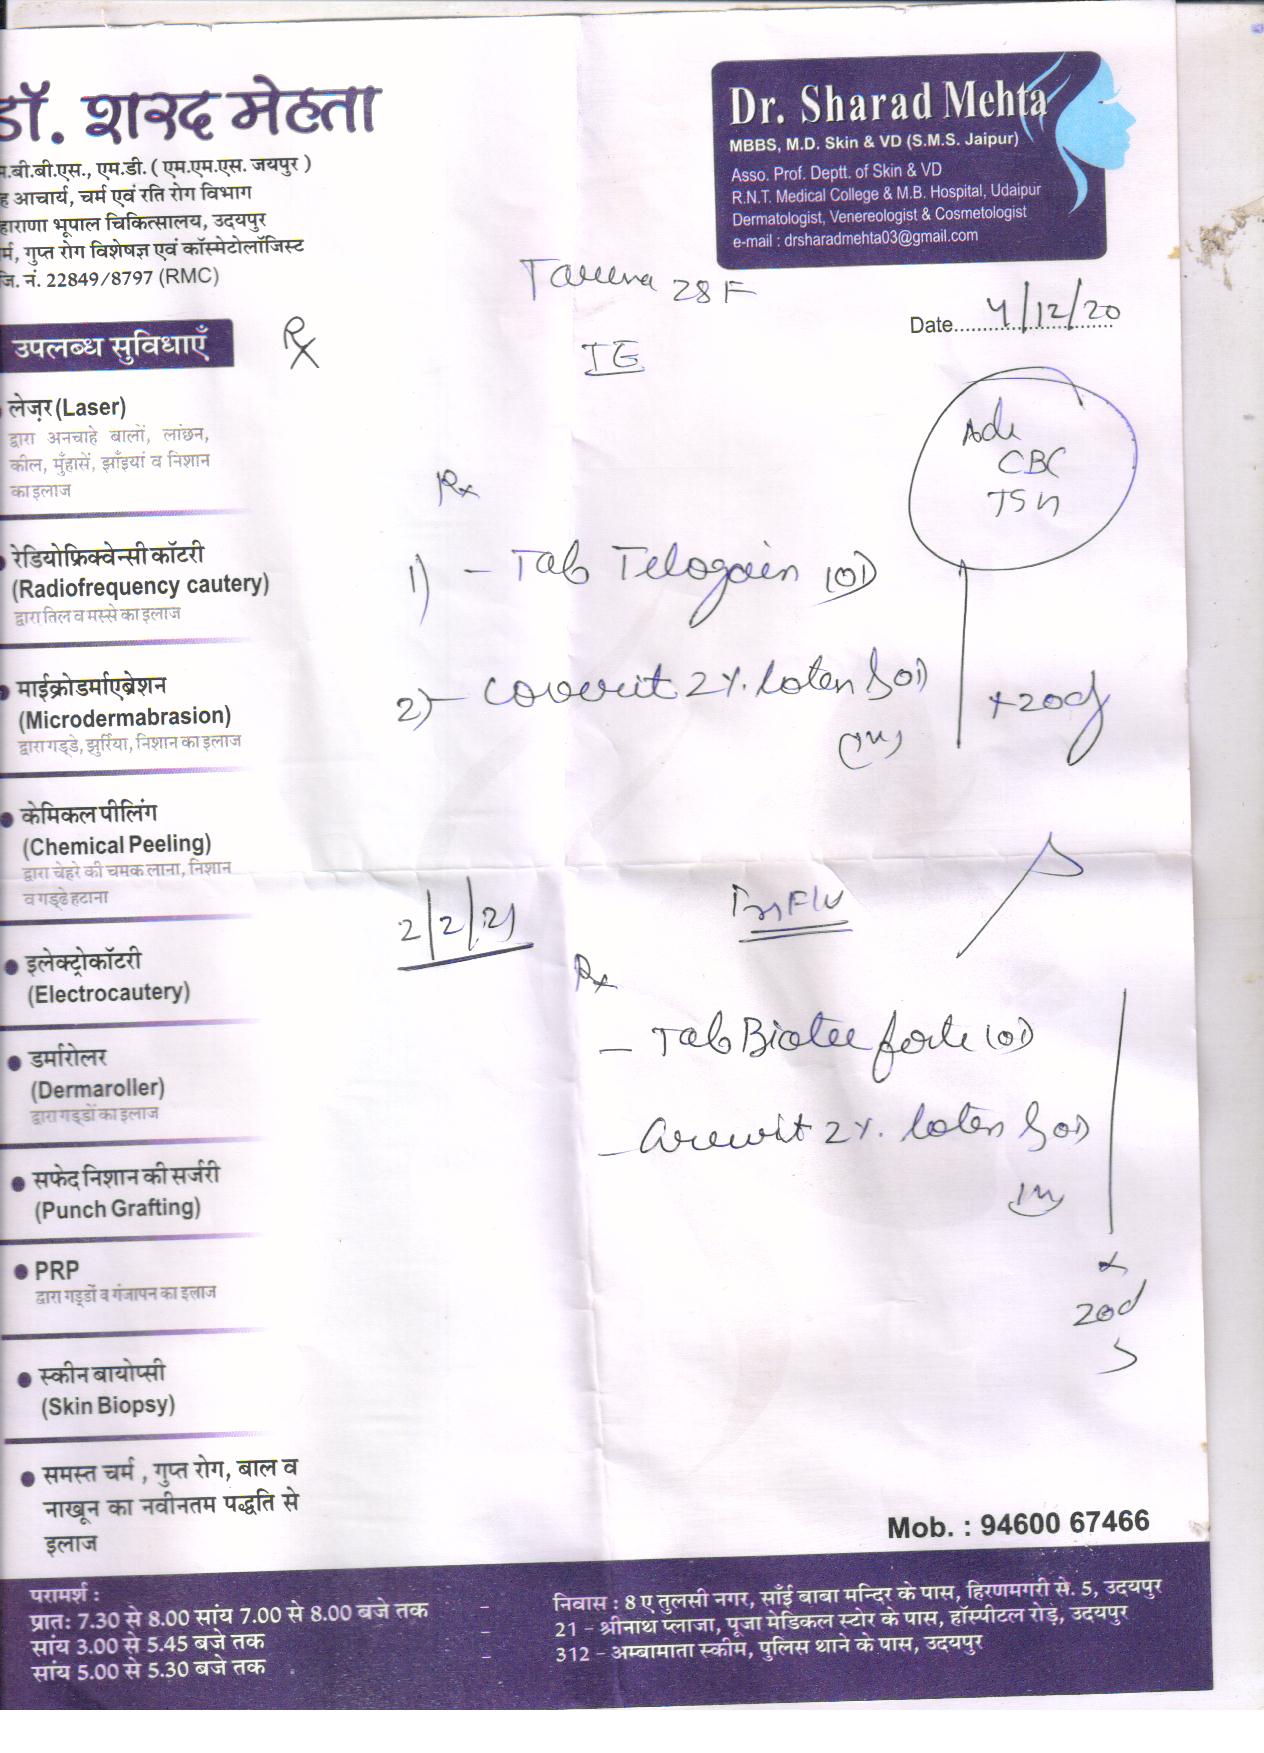 डॉ. शरद मेहता
.बी.बी.एस., एम.डी. ( एम.एम.एस. जयपुर )
ह आचार्य, चर्म एवं रति रोग विभाग
हाराणा भूपाल चिकित्सालय, उदयपुर
र्म, गुप्त रोग विशेषज्ञ एवं कॉस्मेटोलॉजिस्ट
जि. नं. 22849/8797 (RMC)
Dr. Sharad Mehta
MBBS, M.D. Skin & VD (S.M.S. Jaipur)
Asso. Prof. Deptt. of Skin & VD
R.N.T. Medical College & M.B. Hospital, Udaipur
Dermatologist, Venereologist & Cosmetologist
e-mail : drsharadmehta03@gmail.com
28 F
Date.... 4/12/20
Rx
TE
Adv
CBC
TSH
Rx
1) - Tab Telogain (OD)
2) - 2%. lotion
x 20d
2/2/21
Rx
- Tab forte (OD)
- 2%. lotion
x
20d
उपलब्ध सुविधाएँ
लेज़र (Laser)
द्वारा अनचाहे बालों, लांछन,
कील, मुँहासें, झाँइयां व निशान
का इलाज
रेडियोफ्रिक्वेन्सी कॉटरी
(Radiofrequency cautery)
द्वारा तिल व मस्से का इलाज
माईक्रोडर्माएब्रेशन
(Microdermabrasion)
द्वारा गड्डे, झुर्रिया, निशान का इलाज
केमिकल पीलिंग
(Chemical Peeling)
द्वारा चेहरे की चमक लाना, निशान
व गड्ढे हटाना
इलेक्ट्रोकॉटरी
(Electrocautery)
डर्मारोलर
(Dermaroller)
द्वारा गड्डों का इलाज
सफेद निशान की सर्जरी
(Punch Grafting)
PRP
द्वारा गड्डों व गंजापन का इलाज
स्कीन बायोप्सी
(Skin Biopsy)
समस्त चर्म , गुप्त रोग, बाल व
नाखून का नवीनतम पद्धति से
इलाज
Mob. : 94600 67466
परामर्श :
प्रात: 7.30 से 8.00 सांय 7.00 से 8.00 बजे तक
सांय 3.00 से 5.45 बजे तक
सांय 5.00 से 5.30 बजे तक
निवास : 8 ए तुलसी नगर, साँई बाबा मन्दिर के पास, हिरणमगरी से. 5, उदयपुर
21 - श्रीनाथ प्लाजा, पूजा मेडिकल स्टोर के पास, हॉस्पीटल रोड़, उदयपुर
312 - अम्बामाता स्कीम, पुलिस थाने के पास, उदयपुर